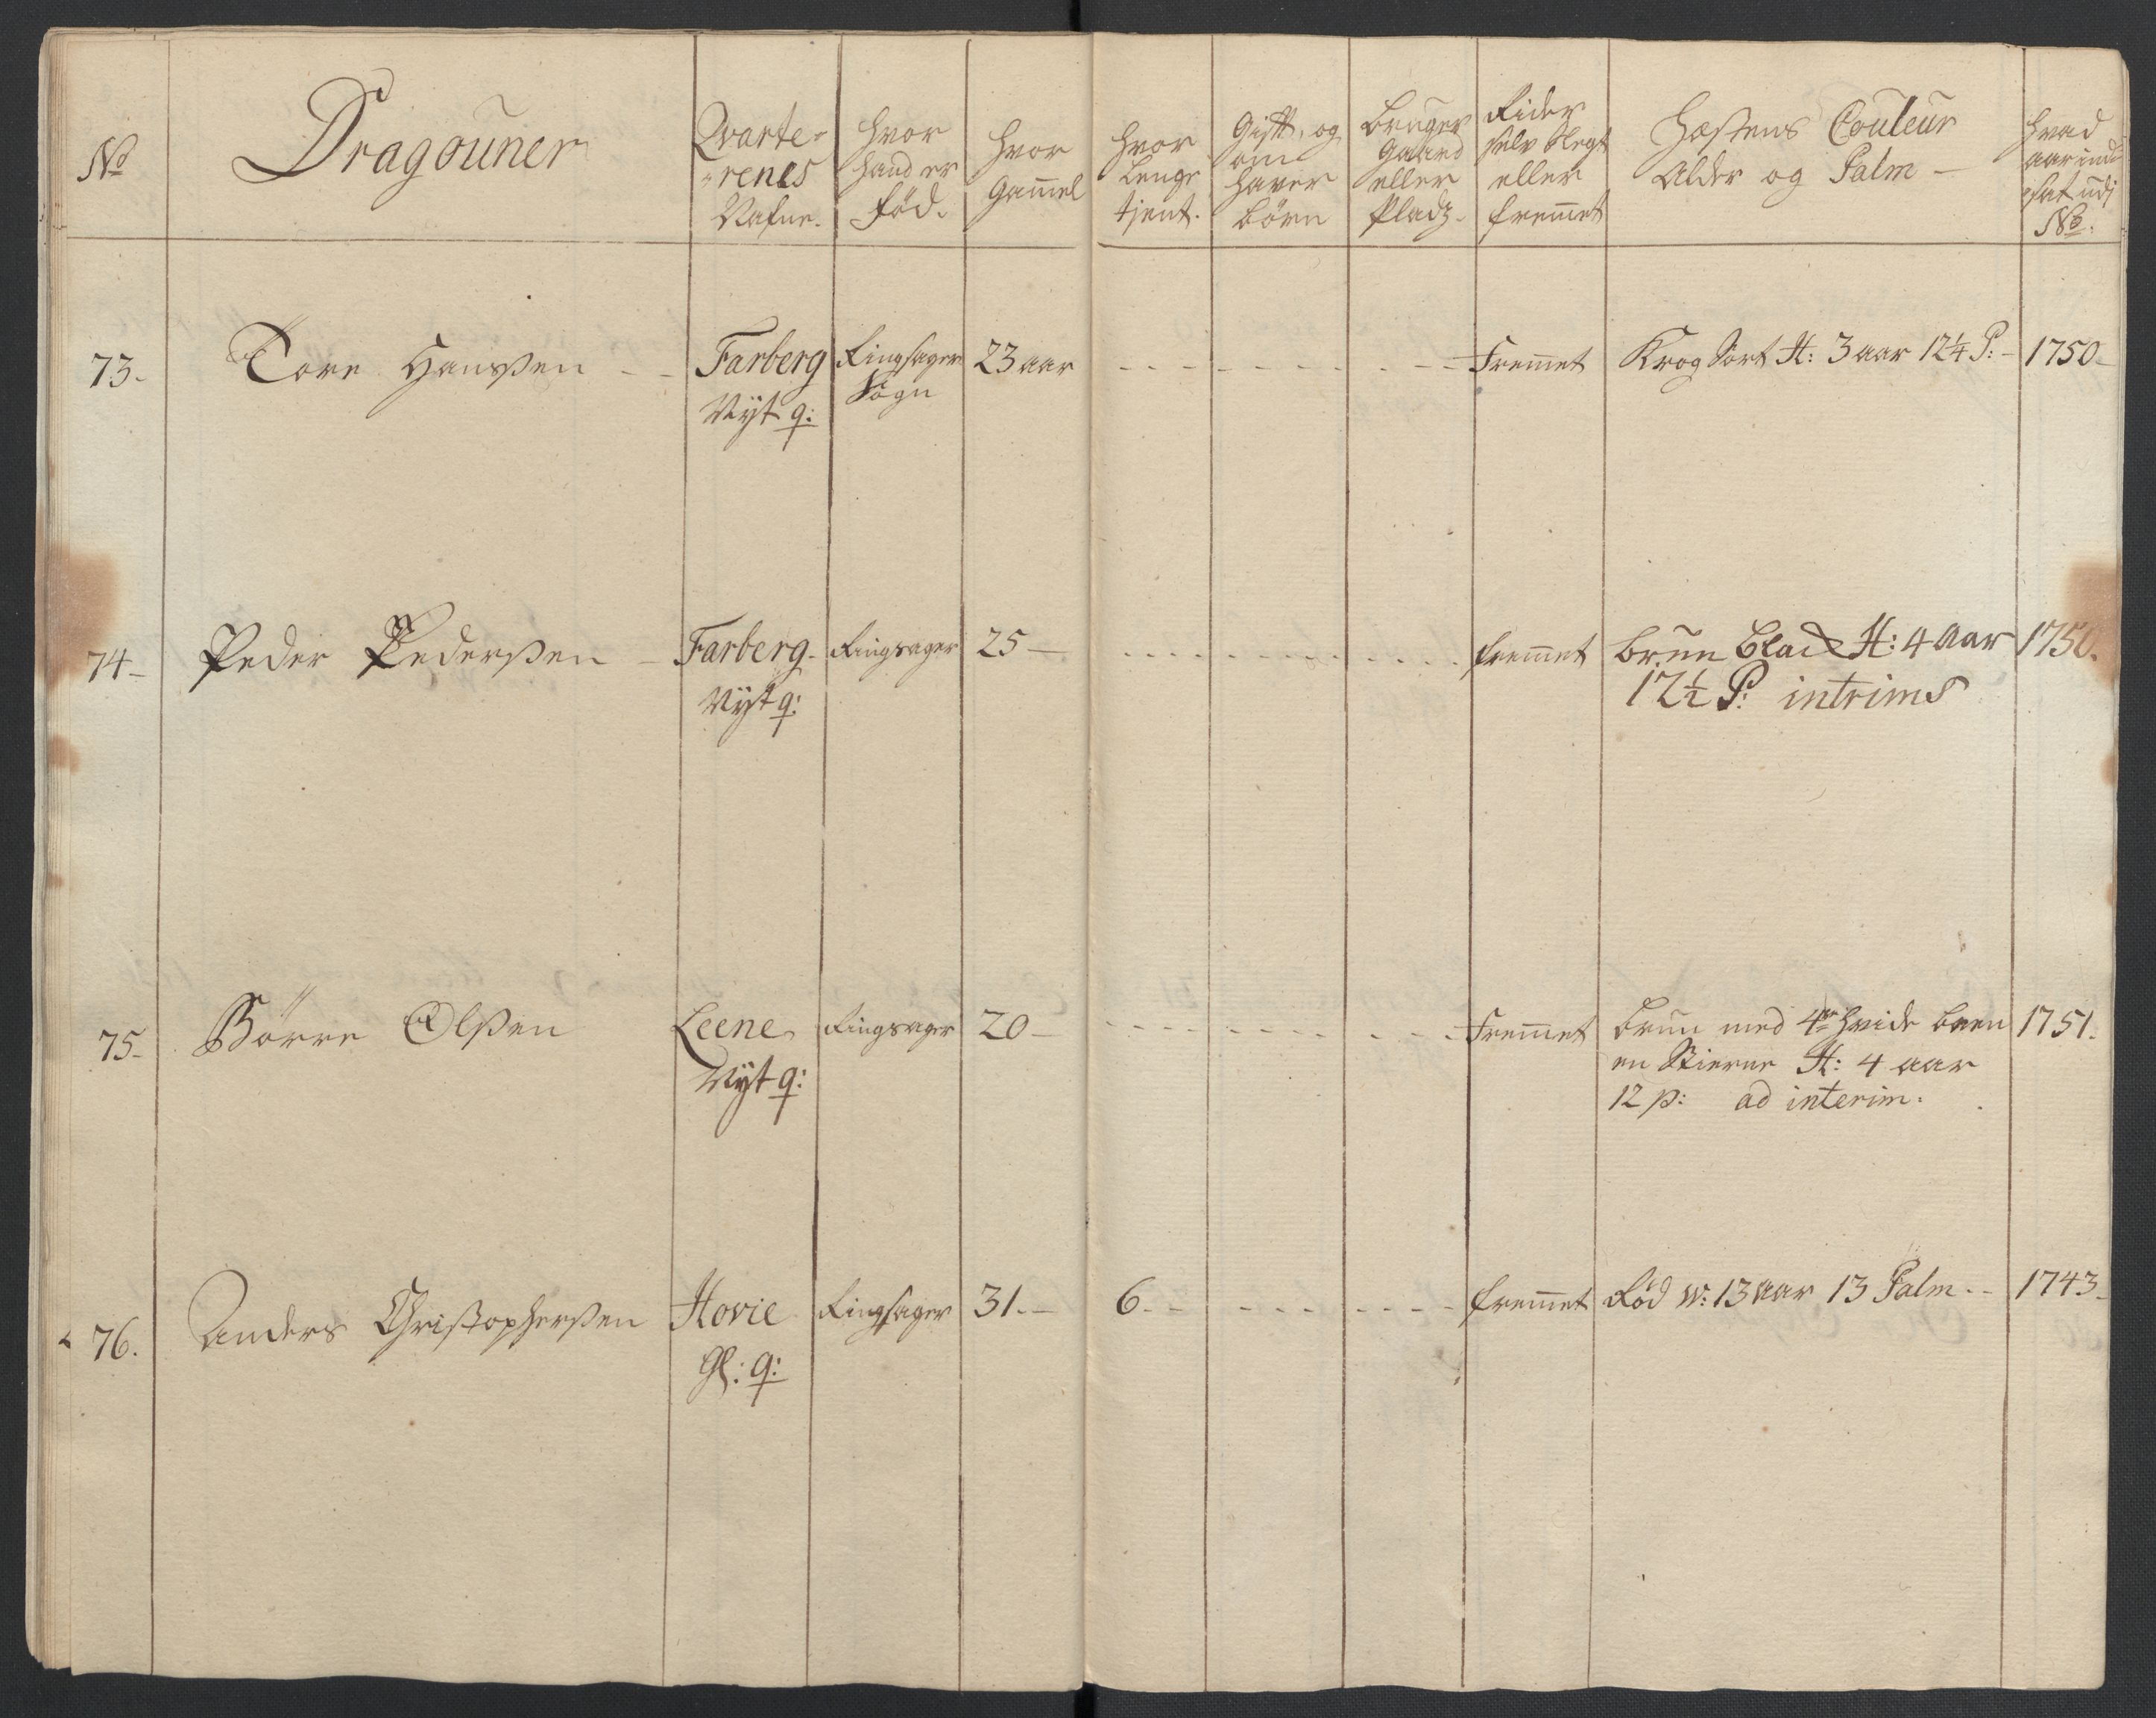 No
Dragouner
Qvarte-
-renes
Nafne.
Hvor
hand er
fød.
Hvor
Gam̄el
Hvor
Lenge
tient.
Gift, og
om
haver
børn
Bruger
Gaard
eller
Pladz.
Rider
selv Slegt
eller
frem̄et
Hæstens Couleur
Alder og Palm —
Hvad
aar ind-
sat udj
No.
73. Tore Hansßen - - Farberg Ringsager 23 aar - - - Frem̄et Krog Sort H: 3 aar 12¼ P: - 1750
Nyt q: Sogn
74 Peder Pederßen - Farberg. Ringsager 25 — - - - frem̄et brun blad H: 4 aar 1750.
Nyt q: 12½ P: intrims
75. Börre Olßen Leene Ringsager 20 — - - - Frem̄et brun med 4re hvide been 1751.
Nyt q: en Stierne H: 4 aar
12 p: ad interim.
76. Anders Christopherßen Hovie Ringsager 31. — 6. - - - frem̄et Rød W: 13 aar 13 Palm. - 1743
Gl: q: